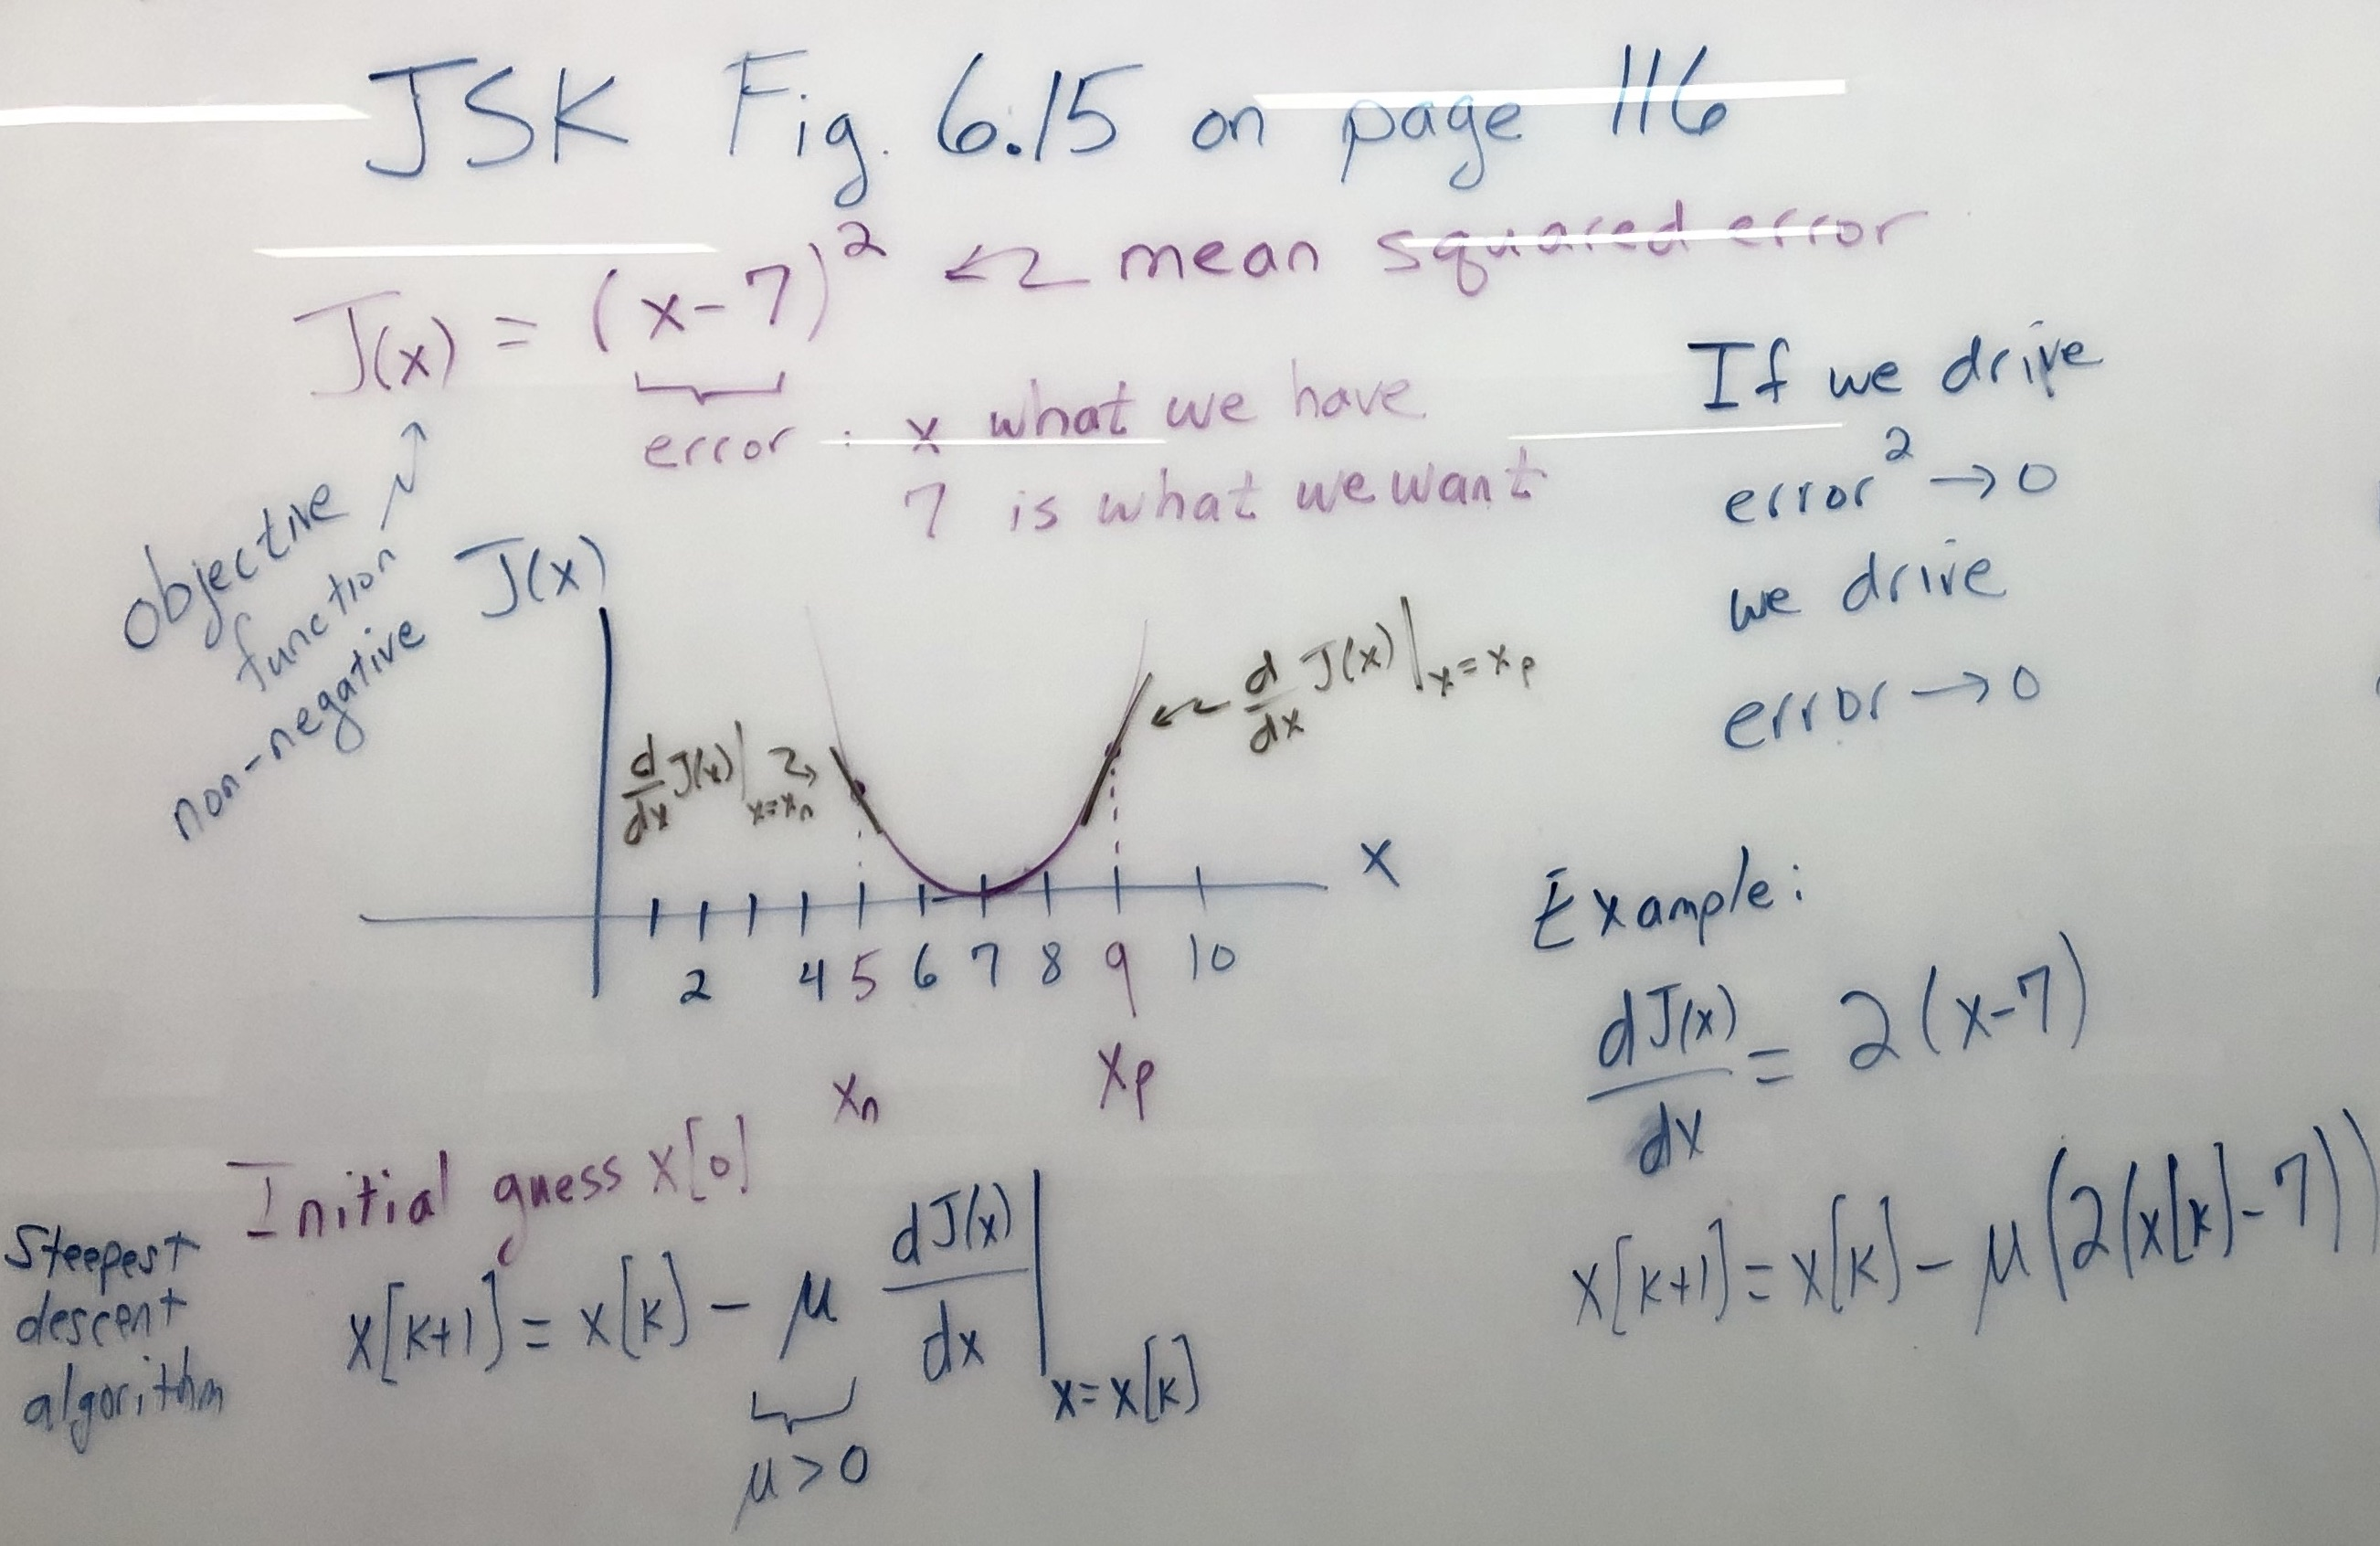 JSK Fig. 6.15 on page 116
J(x) = (x-7)² ← mean squared error
error : x what we have
7 is what we want
objective
function
non-negative
If we drive
error² → 0
we drive
error → 0
J(x)
d/dx J(x)|x=xₙ
d/dx J(x)|x=xₚ
x
2 4 5 6 7 8 9 10
xₙ xₚ
Example:
dJ(x)/dx = 2(x-7)
x[k+1] = x[k] - μ(2(x[k]-7))
Initial guess x[0]
Steepest
descent
algorithm
x[k+1] = x[k] - μ dJ(x)/dx |x=x[k]
μ>0